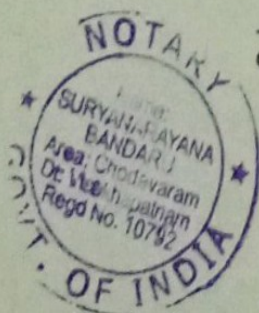 NOTARY
SURYANARAYANA
BANDARU
Area: Chodavaram
Dt: Visakhapatnam
Regd No. 10792
GOVT. OF INDIA